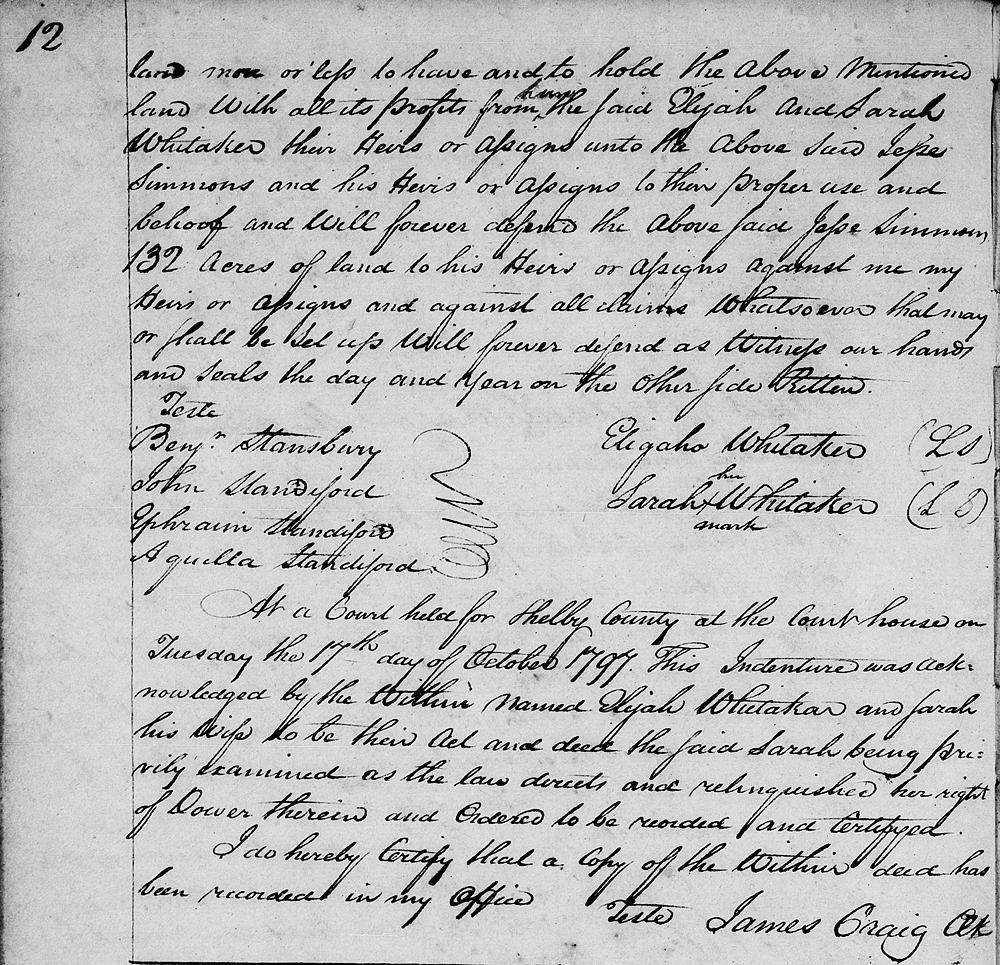 12
land more or less to have and to hold the Above Mentioned
land With all its profits from him the said Elijah And Sarah
Whitaker their Heirs or Assigns unto the Above Said Jesse
Simmons and his Heirs or Assigns to their proper use and
behoof and Will forever defend the Above said Jesse Simmons
132 Acres of land to his Heirs or Assigns against me my
Heirs or Assigns and against all claims Whatsoever that may
or shall be Set up Will forever defend as Witness our hands
and Seals the day and Year on the Other side Ritten.
Teste
Benjn Stansbury Eligaho Whitaker (L S)
John Standiford Sarah her Whitaker (L S)
mark
Ephraim Standiford
Aquilla Standiford
At a Court held for Shelby County at the Court house on
Tuesday the 17th day of October 1797. This Indenture was ack=
nowledged by the Within Named Elijah Whitakar and sarah
his Wife to be their Act and deed the said Sarah being pri=
vily examined as the law directs and relinquished her right
of Dower therein and Ordered to be recorded and Certifyed.
I do hereby Certify that a Copy of the Within deed has
been recorded in my Office
Teste James Craig Clk